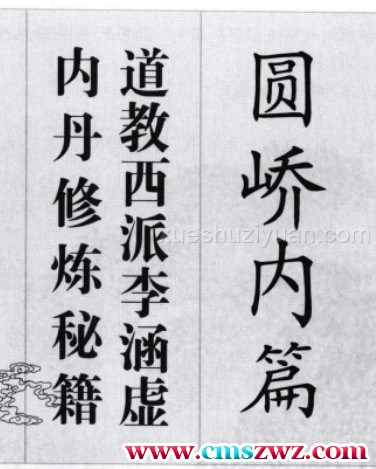 圆峤内篇
道教西派李涵虚
内丹修炼秘籍
xueshuziyuan.com
www.cmszwz.com